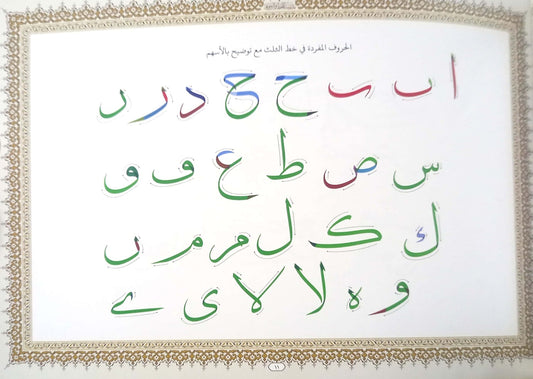 الحروف المفردة في خط الثلث مع توضيح بالأسهم
ا ب ب ح ح د ر ر
س ص ط ع ف و
ك ك ل م م ں
و ه لا لا ى ے
١١